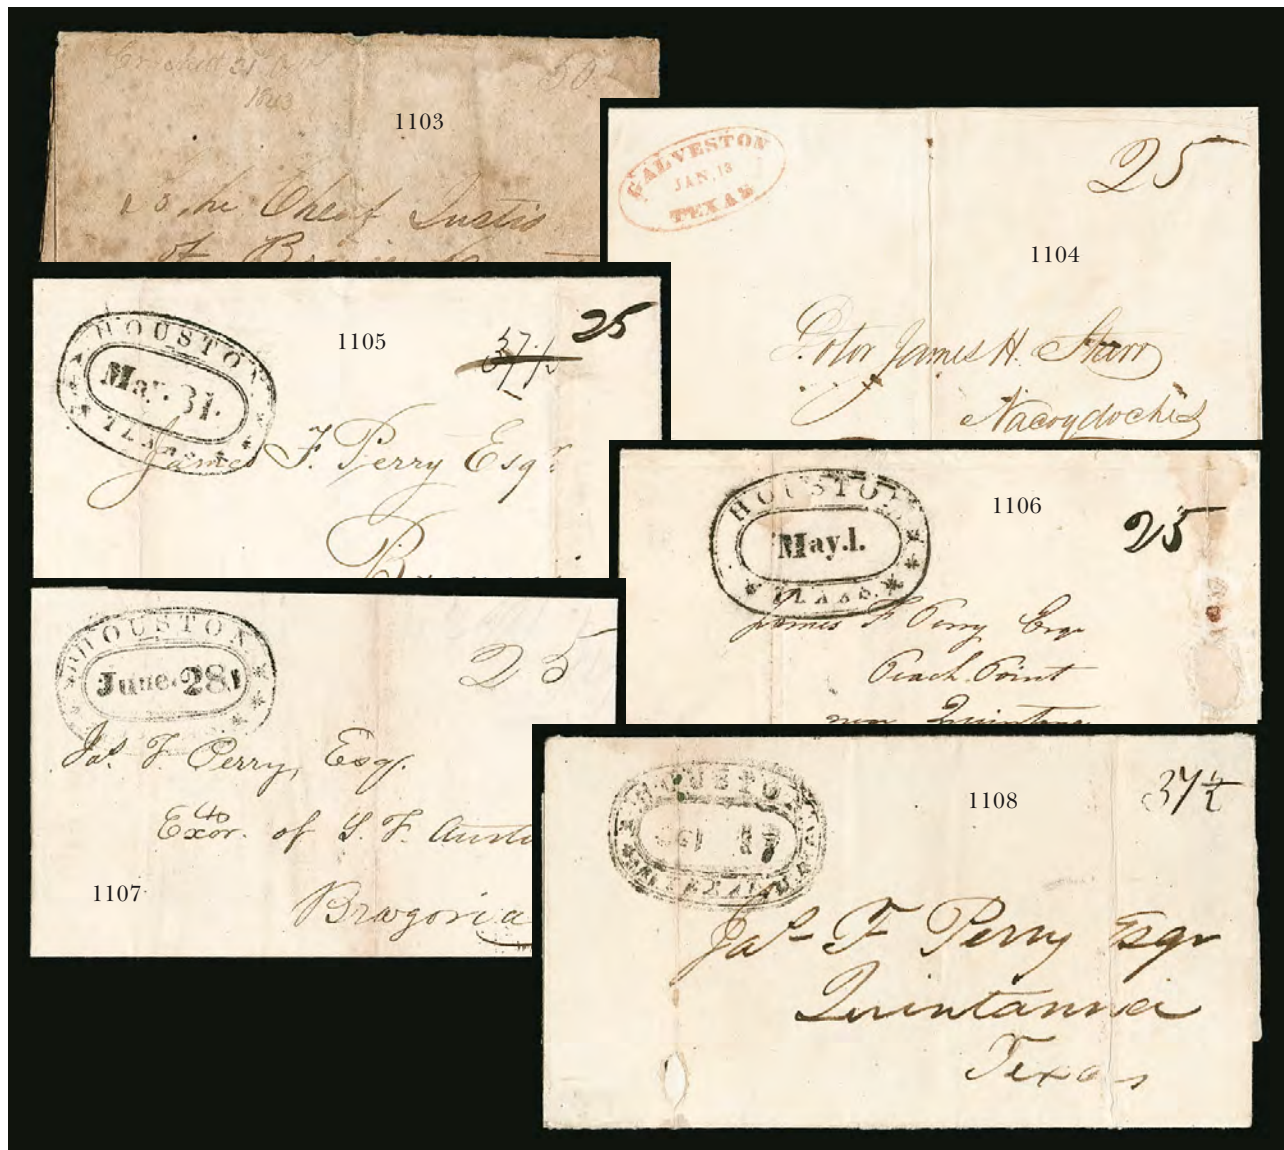 Crockett 21 Octr
50
1843
1103
To the Cheaf Justis
of
GALVESTON
JAN. 13
TEXAS
25
1104
Doctor James H. Starr
Nacogdoches
HOUSTON
May. 31.
TEXAS
1105
37 1/2
25
James F. Perry Esqr
HOUSTON
May. 1.
TEXAS.
1106
25
James F Perry Esqr
Peach Point
near Quintana
HOUSTON
June. 28.
25
Jas. F. Perry, Esq.
Exor. of S. F. Austin
1107
Brazoria
HOUSTON
TEXAS
1108
37 1/2
Jas F Perry Esqr
Quintanna
Texas